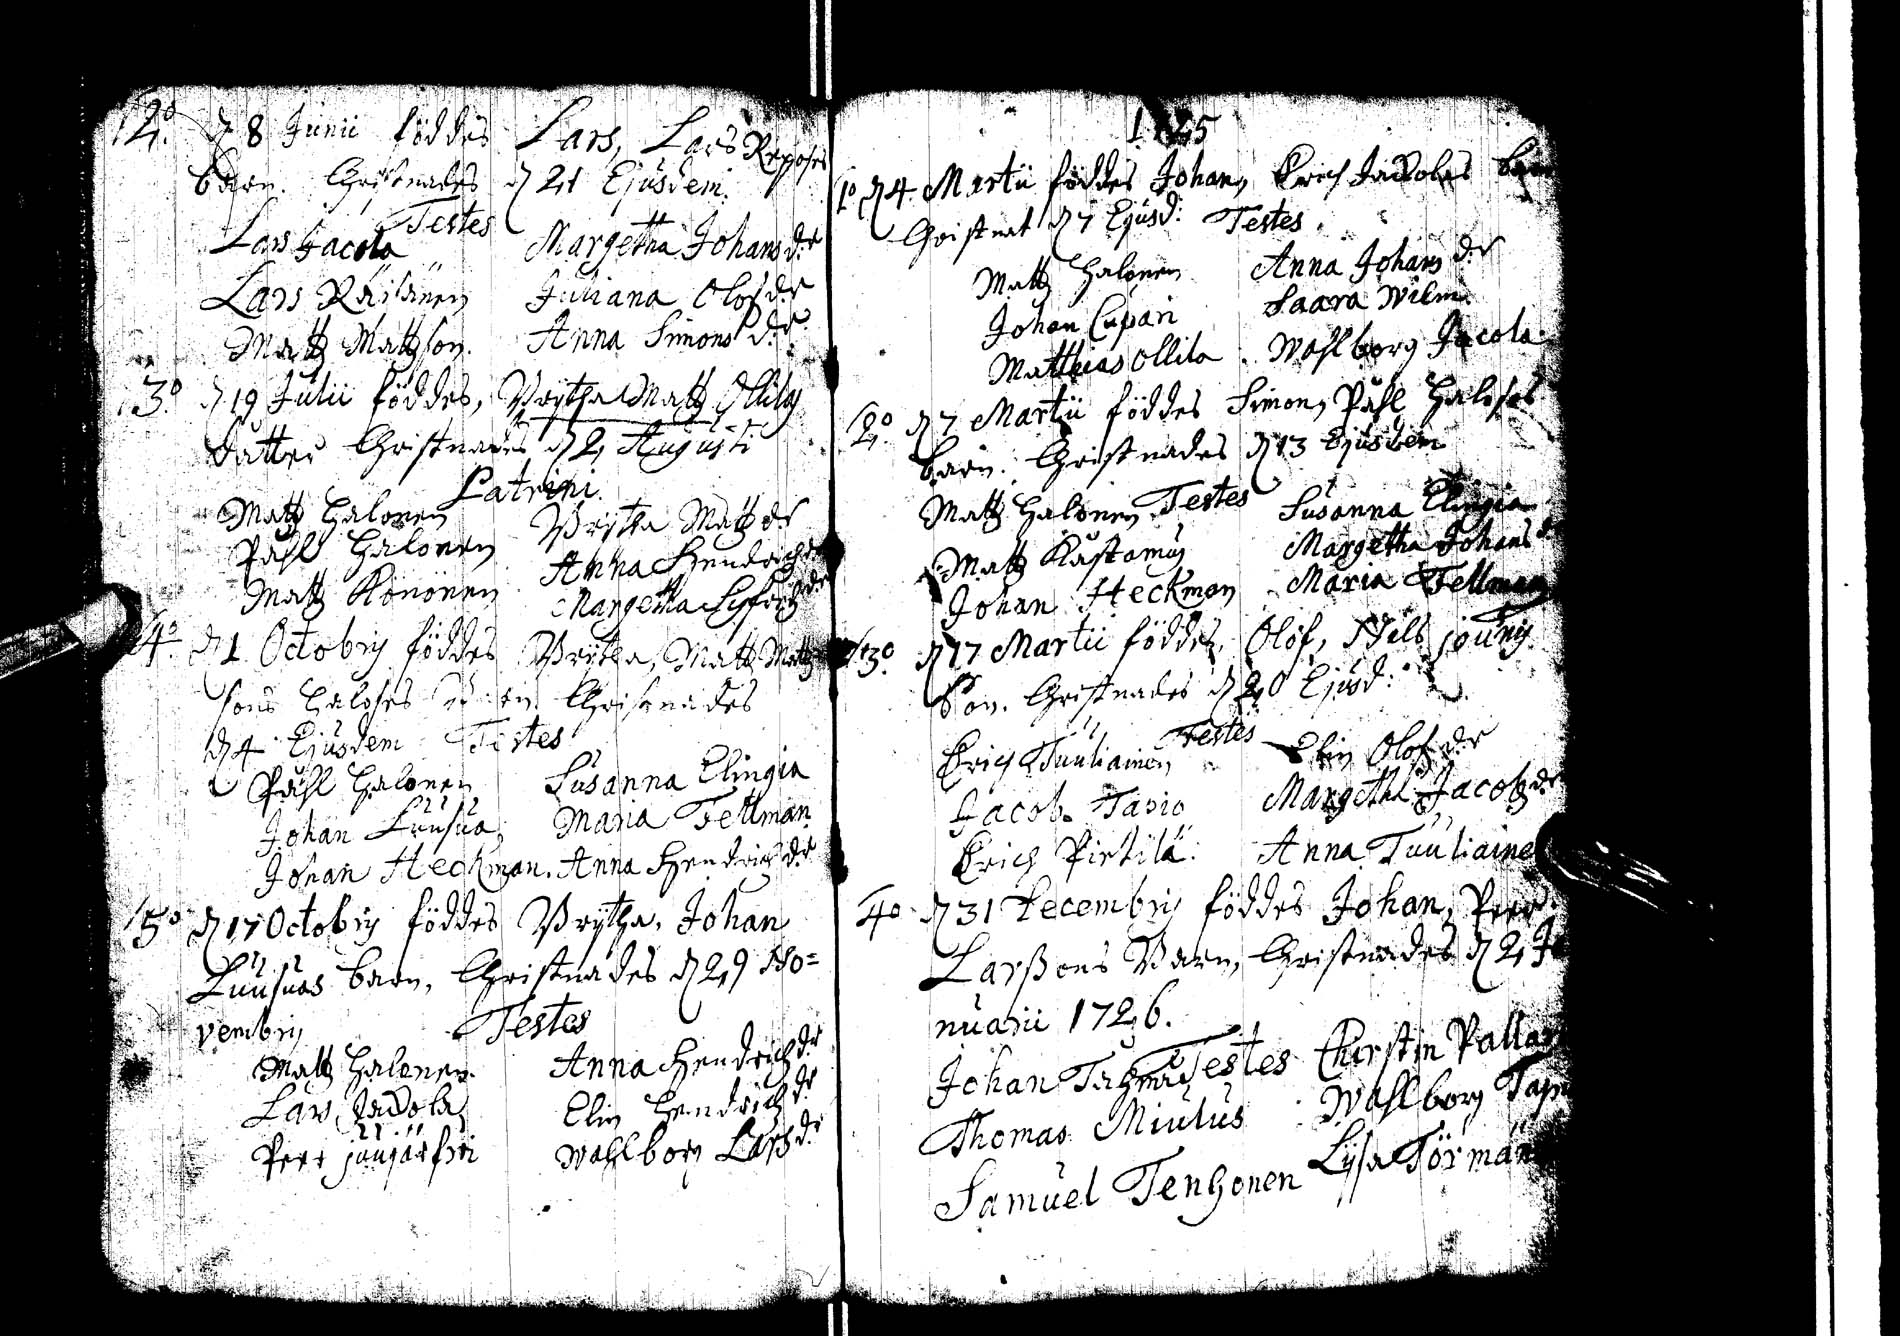 12º d 8 Junii föddes Lars, Lars Reposes
barn. Christnades d 21 Ejusdem.
Testes
Lars Jacola Margetha Johansdr
Lars Räisänen Juliana Olofsdr
Matz Matzson. Anna Simonsdr
13º d 19 Julii föddes, Brytha Matz Ollilas
datter Christnades d 2 Augusti
Patrini
Matz Halonen Brytha Matzdr
Påhl Halonen Anna Hendrichsdr
Matz Kononen Margetha
14º d 1 Octobris föddes Brytha, Matz Matz
sons Haloses Christnades
d 4 Ejusdem Testes
Påhl Halonen Susanna Elingia
Johan Luusua Maria Fellman
Johan Heckman. Anna Hendrichsdr
15º d 17 Octobris föddes Brytha, Johan
Luusuas barn, Christnades d 29 No=
vembris Testes
Matz Halonen. Anna Hendrichsdr
Lars Jacola Elin Hendrichsdr
Peer Wahlborg Larsdr
1725
1º d 4 Martii föddes Johan, Erich Jacolas barn
Christnat d 7 Ejusd: Testes
Matz Halonen Anna Johansdr
Johan Cupari Saara Wilm
Matthias Ollila Wahlborg Jacola
2º d 7 Martii föddes Simon, Påhl Haloses
barn. Christnades d 13 Ejusdem
Testes
Matz Halonen Susanna Elingia
Matz Kustamus Margetha Johansdr
Johan Heckman Maria Fellman
3º d 17 Martii föddes, Olof, Nils
Son. Christnades d 20 Ejusd:
Testes
Erich Tuuliainen Elin Olofsdr
Jacob Tanio Margetha Jacobsdr
Erich Pirtilä. Anna Tuuliainen
4º d 31 Decembris föddes Johan, Peer
Larßons Barn, Christnades d 2 Ja
nuarii 1726.
Testes
Johan Chirstin Pallari
Thomas Miulus Wahlborg
Samuel Tenhonen Lysa Törmänen